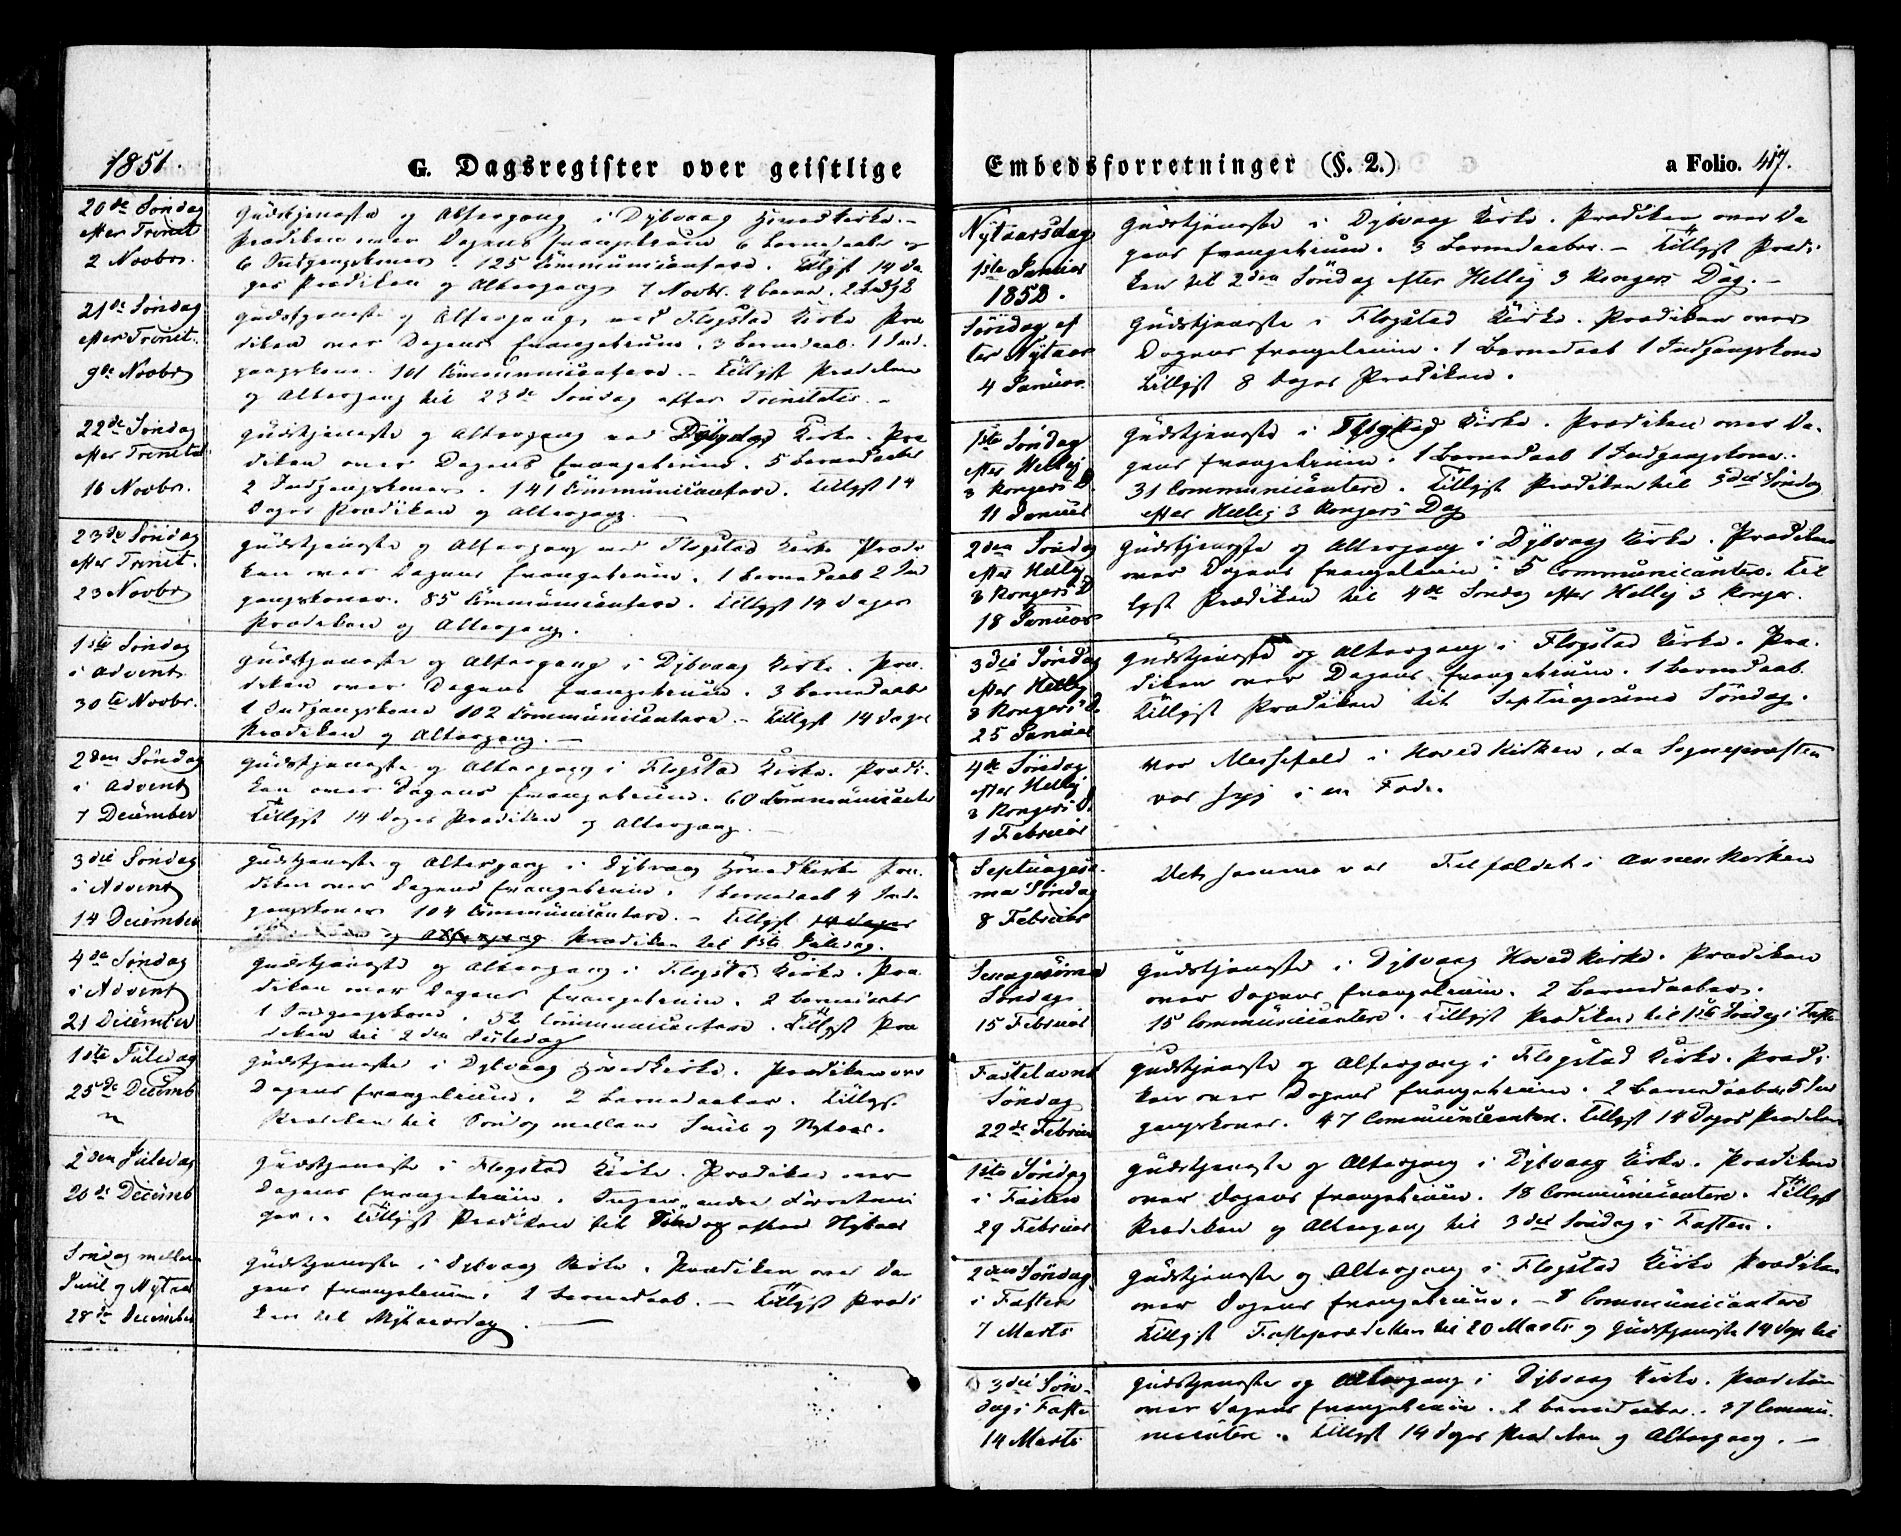 1851.
G. Dagsregister over geistlige
20de Søndag
efter Trinit
2 Novbr.
Gudstjeneste og Altergang i Dybvaag Hovedkirke. –
Prædiken over Dagens Evangelium 6 Barnedaab og
6 Indgangskoner. 125 Communicantere. Tillyst 14 Da
ges Prædiken og Altergang 7 Novbr. 4 Børn. 2 Indgk
21de Søndag
efter Trinit.
9de Novbr
Gudstjeneste og Altergang ved Flosta Kirke Præ
diken over Dagens Evangelium. 3 Barnedaab. 1 Ind-
gangskone. 101 Communicantere. – Tillyst Prædiken
og Altergang til 23de Søndag efter Trinitatis. –
22de Søndag
efter Trinitat
16 Novbr.
Gudstjeneste og Altergang ved Dybvaag Kirke. Præ
diken over Dagens Evangelium. 5 Barnedaaber
2 Indgangskoner. 141 Communicantere. Tillyst 14
Dages Prædiken og Altergang. –
23de Søndag
efter Trinit.
23 Novbr
Gudstjeneste og Altergang ved Flosta Kirke Prædi
ken over Dagens Evangelium. 1 Barnedaab 2 Ind
gangskoner. 85 Communicantere. Tillyst 14 Dages
Prædiken og Altergang.
1ste Søndag
i Advent
30te Novbr.
Gudstjeneste og Altergang i Dybvaag Kirke. Præ
diken over Dagens Evangelium. 3 Barnedaab
1 Indgangskone 102 Communicantere. – Tillyst 14 Dages
Prædiken og Altergang. –
2den Søndag
i Advent
7 December
Gudstjeneste og Altergang i Flosta Kirke. Prædi-
ken over Dagens Evangelium. 60 Communicanter
Tillyst 14 Dages Prædiken og Altergang. –
3die Søndag
i Advent
14 December
Gudstjeneste og Altergang i Dybvaag Hovedkirke Præ
diken over Dagens Evangelium. 1 Barnedaab 4 Ind
gangskoner 104 Communicantere. – Tillyst 14 Dages
og Altergang Prædiken til 1ste Juledag.
4de Søndag
i Advent
21 December
Gudstjeneste og Altergang i Flosta Kirke. Præ
diken over Dagens Evangelium. 2 Barnedaab
1 Indgangskone. 52 Communicantere. Tillyst Præ
diken til 2den Juledag
1ste Juledag
25de Decemb
Gudstjeneste i Dybvaag Hovedkirke. Prædiken over
Dagens Evangelium. 2 Barnedaaber. Tillyst
Prædiken til Søndag mellem Juul og Nytaar.
2den Juledag
26de Decemb
Gudstjeneste i Flosta Kirke. Prædiken over
Dagens Evangelium. Ingen andre Forretnin
ger. Tillyst Prædiken til Søndag efter Nytaar
Søndag mellem
Juul og Nytaar
28de December
Gudstjeneste i Dybvaag Kirke. Prædiken over Da
gens Evangelium. 1 Barnedaab. – Tillyst Prædi
ken til Nytaarsdag. –
Embedsforretninger (§. 2.)
a Folio. 417.
Nytaarsdag
1ste Januar
1852.
Gudstjeneste i Dybvaag Kirke. Prædiken over Da
gens Evangelium. 3 Barnedaaber. – Tillyst Prædi
ken til 2den Søndag efter Hellig 3 Kongers Dag. –
Søndag ef
ter Nytaar
4 Januar
Gudstjeneste i Flosta Kirke. Prædiken over
Dagens Evangelium. 1 Barnedaab 1 Indgangskone
Tillyst 8 Dages Prædiken.
1ste Søndag
efter Hellig
3 Kongers D.
11 Januar
Gudstjeneste i Flosta Kirke. Prædiken over Da-
gens Evangelium. 1 Barnedaab 1 Indgangskone.
31 Communicantere. Tillyst Prædiken til 3die Søndag
efter Hellig 3 Kongers Dag
2den Søndag
efter Hellig
3 Kongers D
18 Januar
Gudstjeneste og Altergang i Dybvaag Kirke. Prædiken
over Dagens Evangelium. 5 Communicanter. Til
lyst Prædiken til 4de Søndag efter Hellig 3 Konger.
3die Søndag
efter Hellig
3 Kongers D.
25 Januar
Gudstjeneste og Altergang i Flosta Kirke. Præ-
diken over Dagens Evangelium. 1 Barnedaab.
Tillyst Prædiken til Septuagesima Søndag.
4de Søndag
efter Hellig
3 Kongers D.
1 Februar
var Messefald i Hovedkirken, da Sognepræsten
var syg i en Fod.
Septuagesi-
ma Søndag
8 Februar
Det samme var Tilfældet i Annexkirken
Sexagesima
Søndag
15 Februar
Gudstjeneste i Dybvaag Hovedkirke. Prædiken
over Dagens Evangelium. 2 Barnedaaber.
15 Communicantere. Tillyst Prædiken til 1ste Søndag i Faste
Fastelavns
Søndag
22de Februar
Gudstjeneste og Altergang i Flosta Kirke. Prædi
ken over Dagens Evangelium. 2 Barnedaaber 5 Ind
gangskoner. 47 Communicanter. Tillyst 14 Dages Prædiken
1ste Søndag
i Fasten
29 Februar
Gudstjeneste og Altergang i Dybvaag Kirke. Prædiken
over Dagens Evangelium. 18 Communicantere. Tillyst
Prædiken og Altergang til 3die Søndag i Fasten.
2den Søndag
i Fasten
7 Marts
Gudstjeneste og Altergang i Flosta Kirke Prædiken
over Dagens Evangelium. – 8 Communicantere
Tillyst Fasteprædiken til 20 Marts og Gudstjeneste 14 Dage til
3die Søn-
dag i Faste
14 Marts
Gudstjeneste og Altergang i Dybvaag Kirke. Prædiken
over Dagens Evangelium. 2 Barnedaaber. 37 Commu-
nicantere. Tillyst 14 Dages Prædiken og Altergang. –